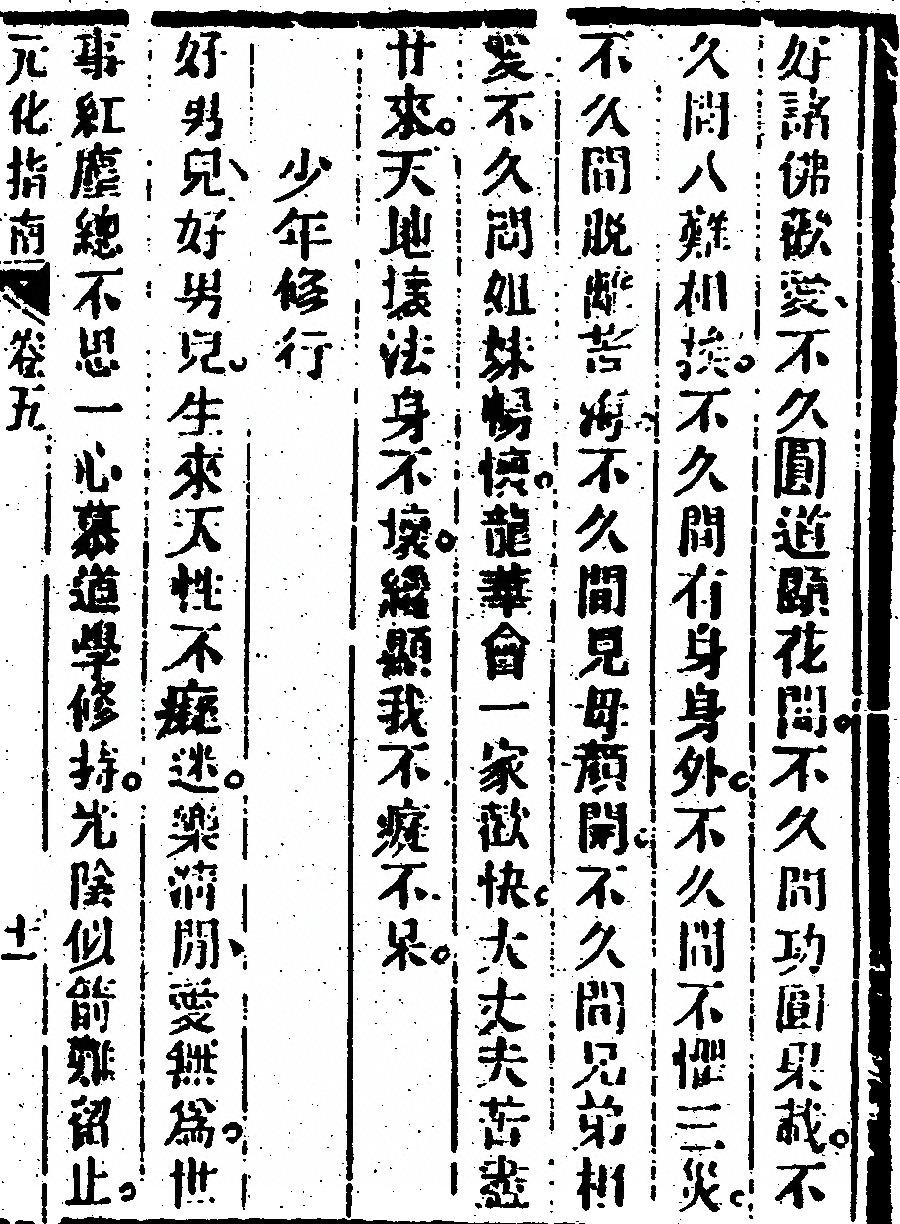 好諸佛歡愛、不久圓道顯花間。不久間功圓果載。不
久間八難相挨。不久間有身身外。不久間不懼三災。
不久間脫離苦海不久間見母顏開。不久間兄弟相
愛不久間姐妹暢懷。龍華會一家歡快。大丈夫苦盡
甘來。天地壞法身不壞。縱顯我不癡不呆。
少年修行
好男兒、好男兒。生來天性不癡迷。樂清閒、愛無為。世
事紅塵總不思一心慕道學修持。光陰似箭難留止。
元化指南 卷五 十一